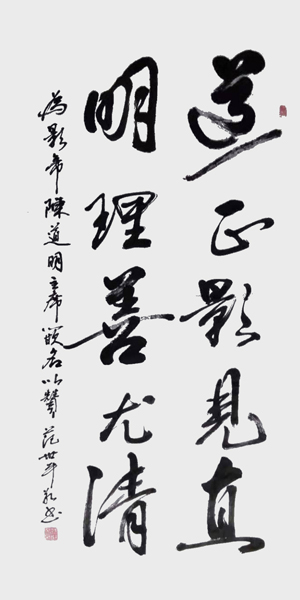 道正影見直
明理善尤清
為影帝陳道明主席嵌名以贊 范世平敬書